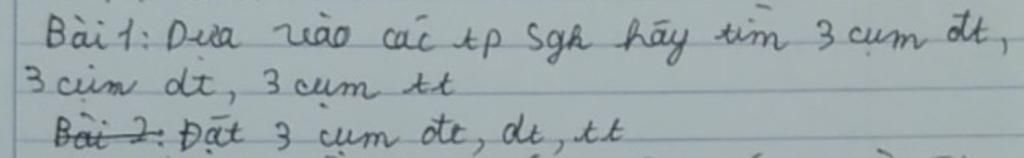 Bài 1: Dựa vào các tp sgk hãy tìm 3 cụm đt,
3 cụm dt, 3 cụm tt
Bài 2: Đặt 3 cụm đt, dt, tt